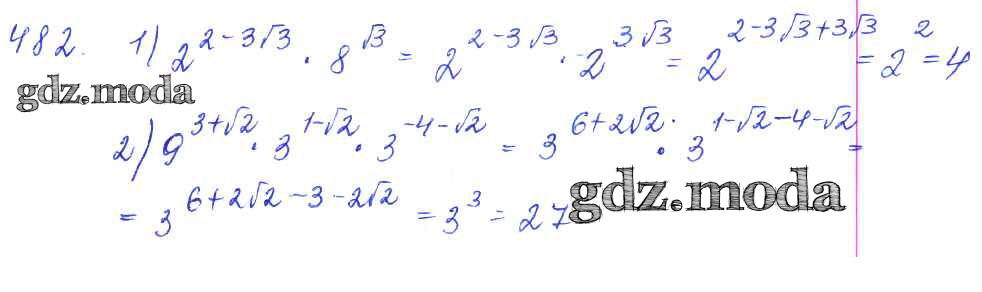 482. 1) 2^{2-3√3} · 8^{√3} = 2^{2-3√3} · 2^{3√3} = 2^{2-3√3+3√3} = 2^2 = 4
gdz.moda
2) 9^{3+√2} · 3^{1-√2} · 3^{-4-√2} = 3^{6+2√2} · 3^{1-√2-4-√2} =
= 3^{6+2√2-3-2√2} = 3^3 = 27
gdz.moda